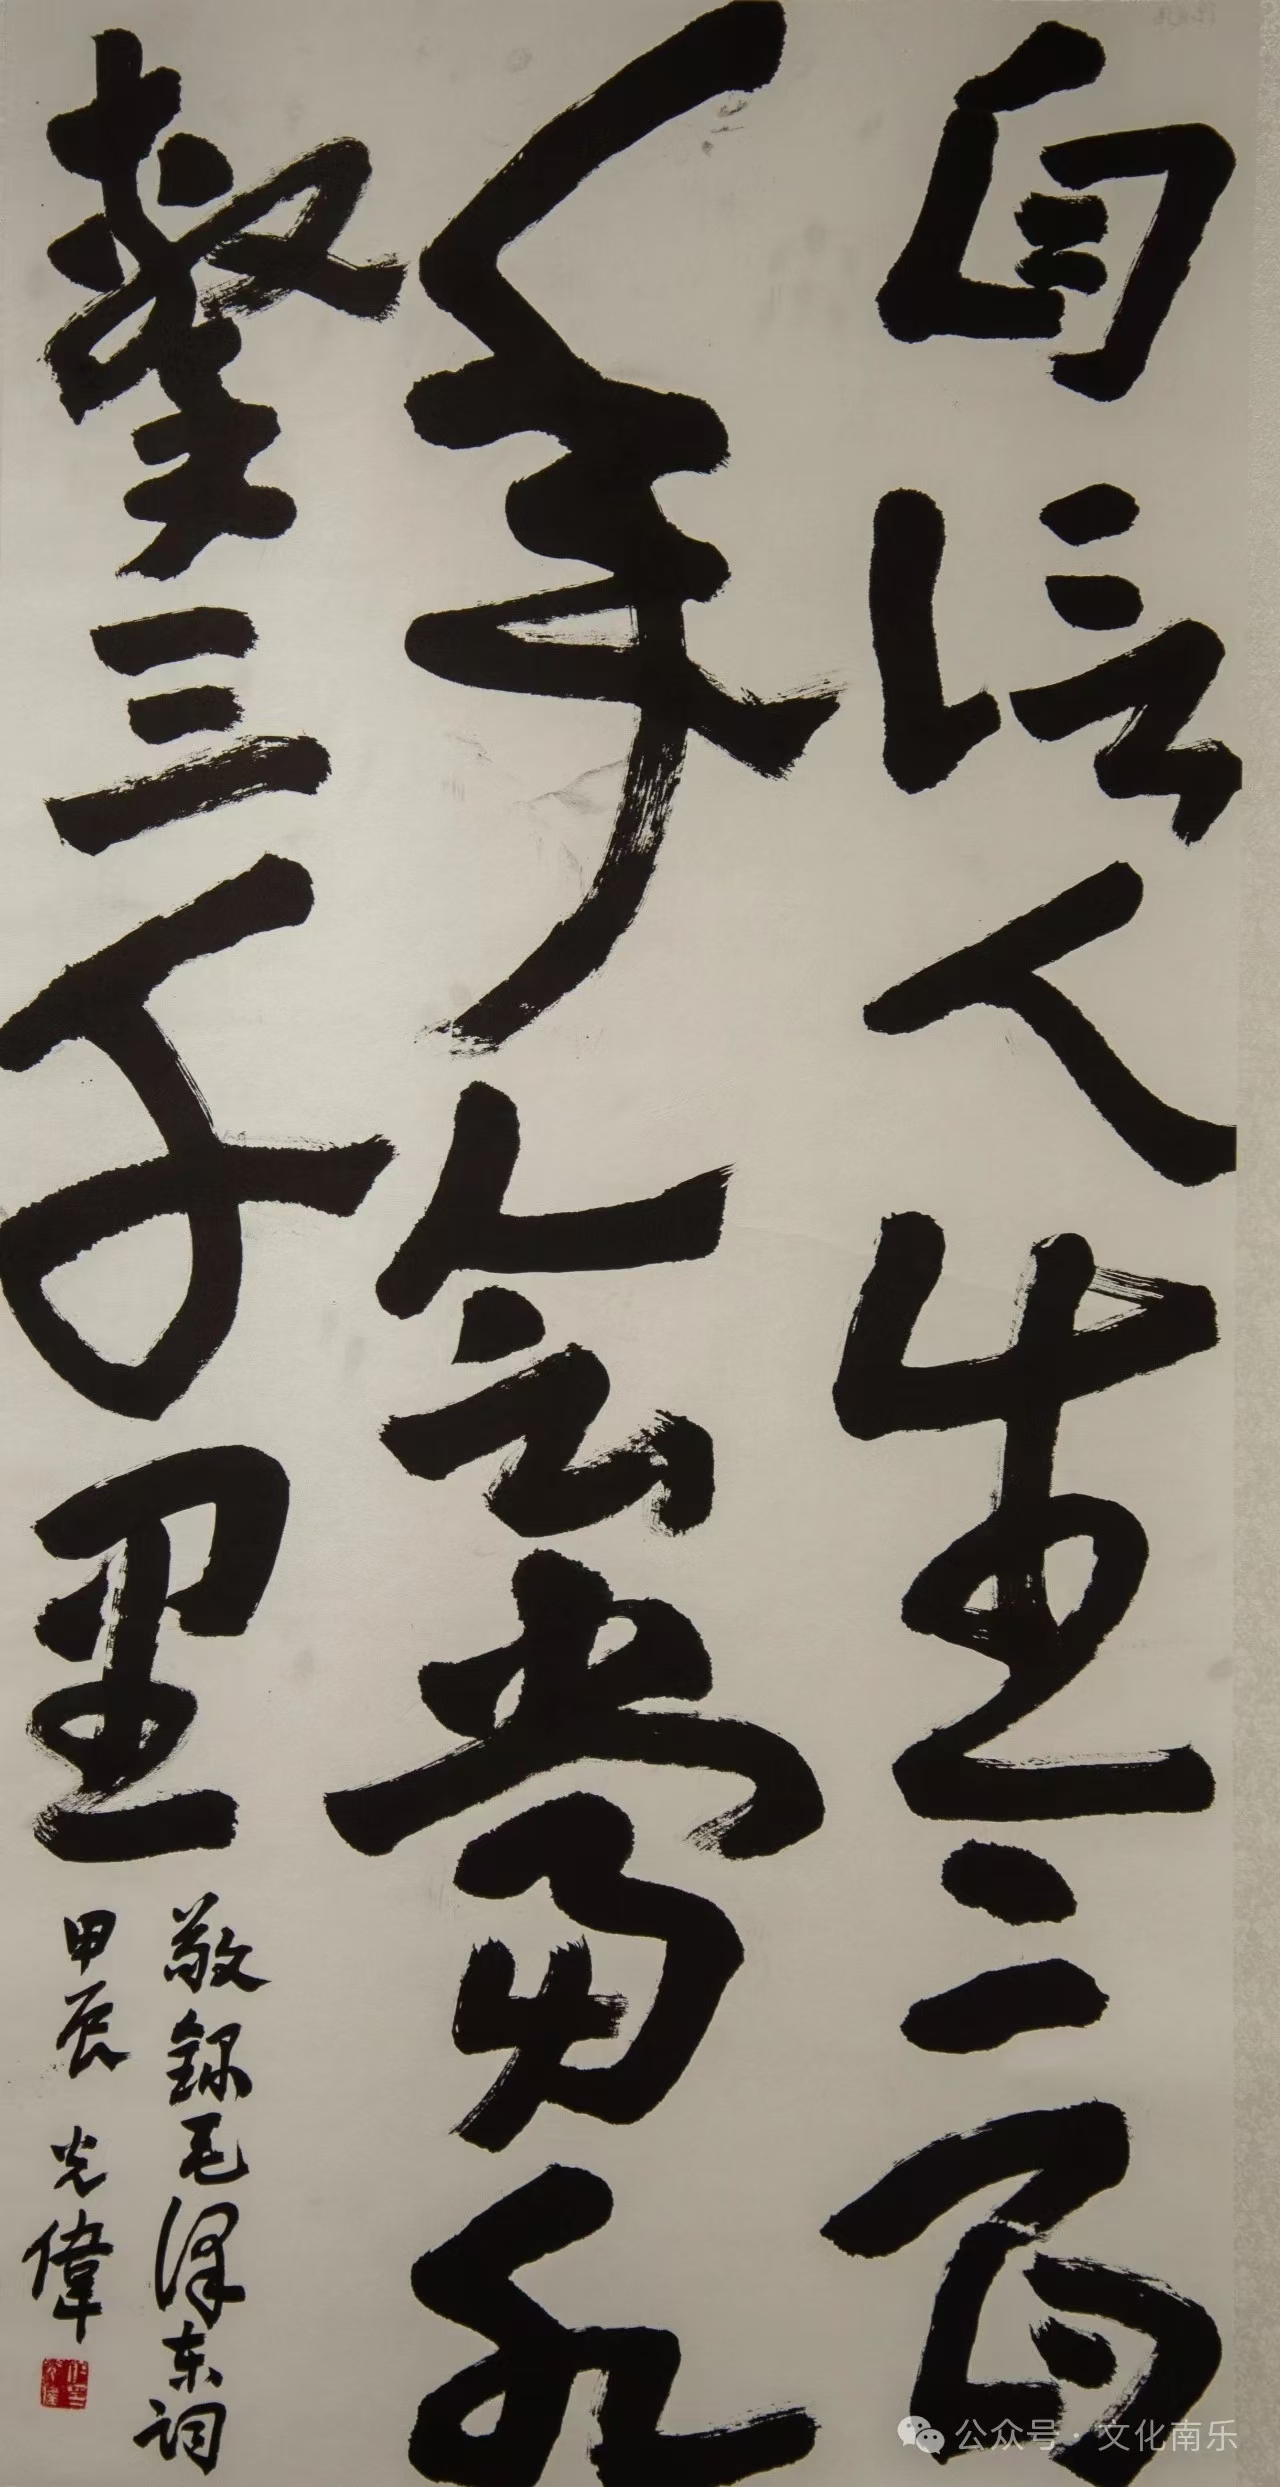 自信人生二百
年会當水
擊三千里
敬録毛泽东词
甲辰 光偉
公众号 · 文化南乐